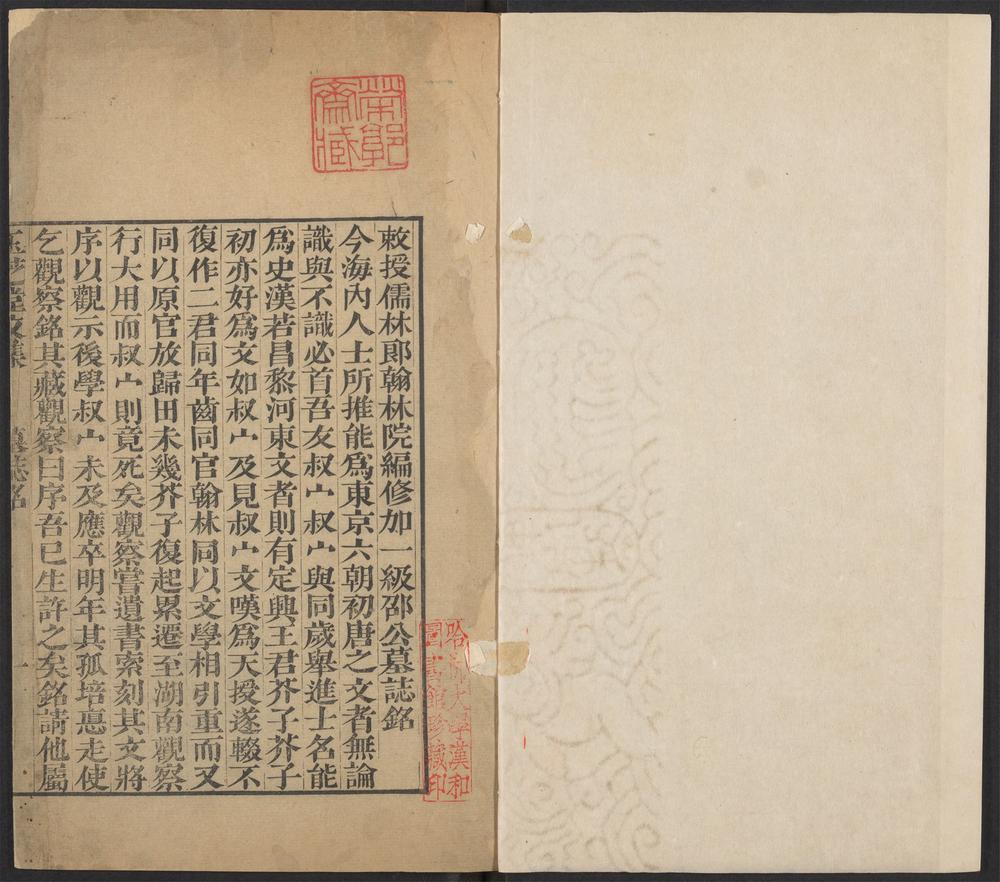 齋藏
哈佛大學漢和
圖書館珍藏印
敕授儒林郎翰林院編修加一級邵公墓誌銘
今海內人士所推能爲東京六朝初唐之文者無論
識與不識必首吾友叔宀叔宀與同歲舉進士名能
爲史漢若昌黎河東文者則有定興王君芥子芥子
初亦好爲文如叔宀及見叔宀文嘆爲天授遂輟不
復作二君同年齒同官翰林同以文學相引重而又
同以原官放歸田未幾芥子復起累遷至湖南觀察
行大用而叔宀則竟死矣觀察嘗遺書索刻其文將
序以觀示後學叔宀未及應卒明年其孤培悳走使
乞觀察銘其藏觀察曰序吾已生許之矣銘請他屬
玉芝堂文集 墓誌銘 一